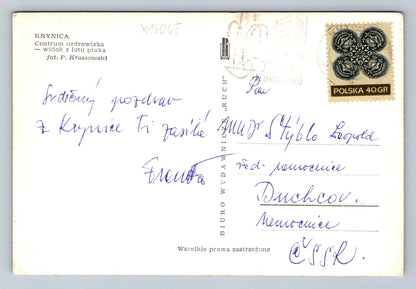 KRYNICA
Centrum uzdrowiska
— widok z lotu ptaka
fot. P. Krassowski
Srdečný pozdrav
z Krynice Ti zasílá
Franta
BIURO WYDAWNICZE „RUCH”
POLSKA 40 GR
Pan
MUDr Stýblo Leopold
řed. nemocnice
Duchcov.
Nemocnice
ČSSR.
Wszelkie prawa zastrzeżone